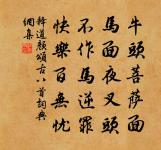 牛頭菩薩面
馬面夜叉頭
不作馬逆罪
快樂百無忧
釋道顏頌古八首詞典
網集